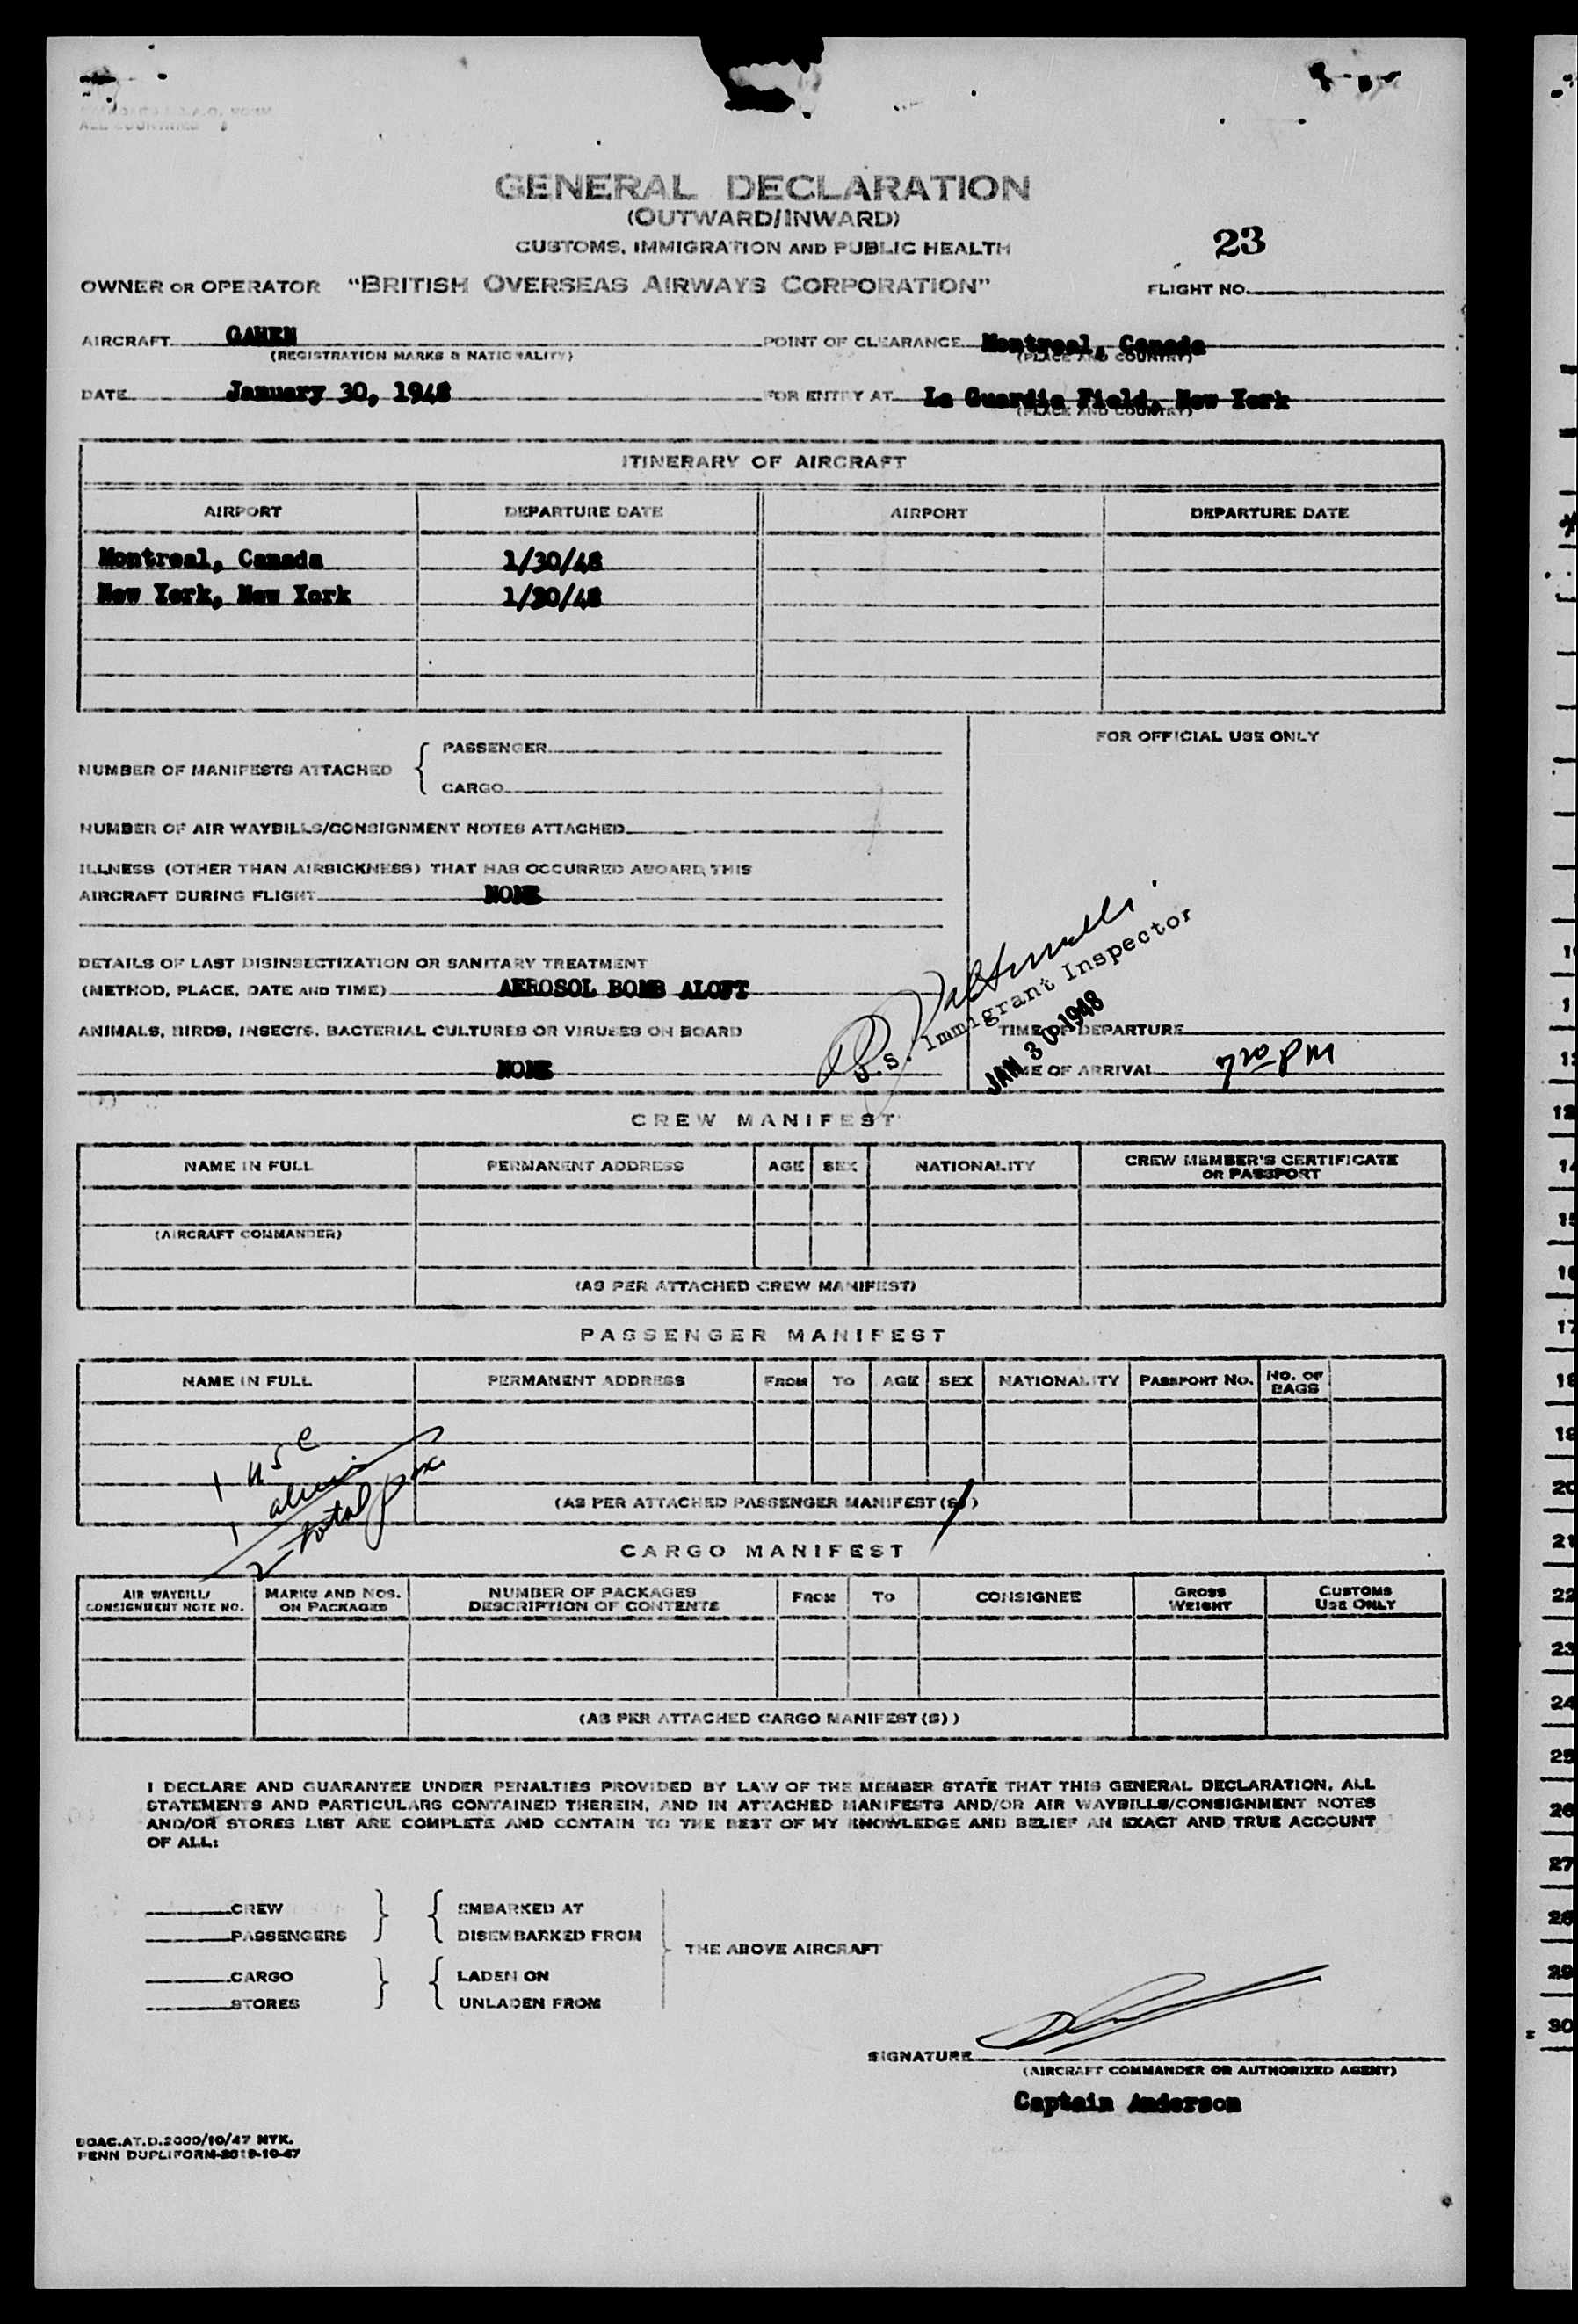 GENERAL DECLARATION
(OUTWARD/INWARD)
CUSTOMS, IMMIGRATION AND PUBLIC HEALTH
23
OWNER OR OPERATOR "BRITISH OVERSEAS AIRWAYS CORPORATION"
FLIGHT NO.
AIRCRAFT GAHEN
(REGISTRATION MARKS & NATIONALITY)
POINT OF CLEARANCE Montreal, Canada
(PLACE AND COUNTRY)
DATE January 30, 1948
FOR ENTRY AT La Guardia Field, New York
(PLACE AND COUNTRY)
ITINERARY OF AIRCRAFT
AIRPORT DEPARTURE DATE AIRPORT DEPARTURE DATE
Montreal, Canada 1/30/48
New York, New York 1/30/48
FOR OFFICIAL USE ONLY
NUMBER OF MANIFESTS ATTACHED { PASSENGER
CARGO
NUMBER OF AIR WAYBILLS/CONSIGNMENT NOTES ATTACHED
ILLNESS (OTHER THAN AIRSICKNESS) THAT HAS OCCURRED ABOARD THIS
AIRCRAFT DURING FLIGHT NONE
DETAILS OF LAST DISINSECTIZATION OR SANITARY TREATMENT
(METHOD, PLACE, DATE AND TIME) AEROSOL BOMB ALOFT
ANIMALS, BIRDS, INSECTS, BACTERIAL CULTURES OR VIRUSES ON BOARD
NONE
U.S. Immigrant Inspector
JAN 30 1948
TIME OF DEPARTURE
TIME OF ARRIVAL 7 20 PM
CREW MANIFEST
NAME IN FULL PERMANENT ADDRESS AGE SEX NATIONALITY CREW MEMBER'S CERTIFICATE
OR PASSPORT
(AIRCRAFT COMMANDER)
(AS PER ATTACHED CREW MANIFEST)
PASSENGER MANIFEST
NAME IN FULL PERMANENT ADDRESS FROM TO AGE SEX NATIONALITY PASSPORT NO. NO. OF
BAGS
1 usc
1 alien
2 total pax.
(AS PER ATTACHED PASSENGER MANIFEST(S))
CARGO MANIFEST
AIR WAYBILL/
CONSIGNMENT NOTE NO.
MARKS AND NOS.
ON PACKAGES
NUMBER OF PACKAGES
DESCRIPTION OF CONTENTS
FROM TO CONSIGNEE
GROSS
WEIGHT
CUSTOMS
USE ONLY
(AS PER ATTACHED CARGO MANIFEST(S))
I DECLARE AND GUARANTEE UNDER PENALTIES PROVIDED BY LAW OF THE MEMBER STATE THAT THIS GENERAL DECLARATION, ALL
STATEMENTS AND PARTICULARS CONTAINED THEREIN, AND IN ATTACHED MANIFESTS AND/OR AIR WAYBILLS/CONSIGNMENT NOTES
AND/OR STORES LIST ARE COMPLETE AND CONTAIN TO THE BEST OF MY KNOWLEDGE AND BELIEF AN EXACT AND TRUE ACCOUNT
OF ALL:
CREW
PASSENGERS
EMBARKED AT
DISEMBARKED FROM
THE ABOVE AIRCRAFT
CARGO
STORES
LADEN ON
UNLADEN FROM
SIGNATURE
(AIRCRAFT COMMANDER OR AUTHORIZED AGENT)
Captain Anderson
BOAC.AT.D.2000/10/47 NYK.
PENN DUPLIFORM-2819-10-47